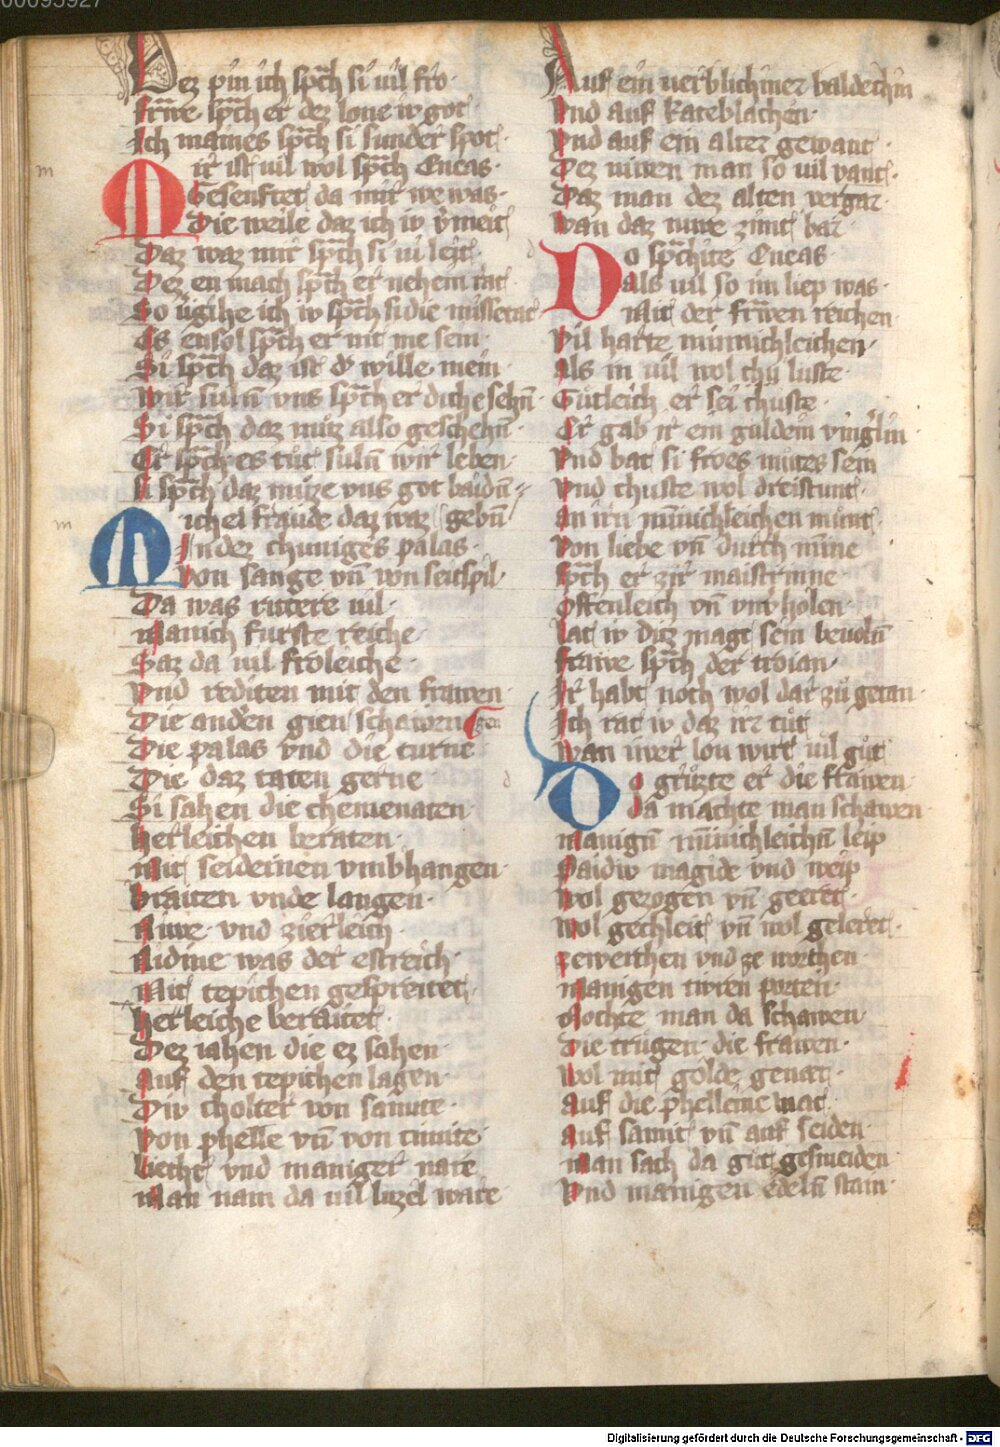 00095927
Dez pin ich sp̄ch si vil fro·
frāwe sp̄ch er dez lone iv got·
Ich maines sp̄ch si sunder spot·
m
Mir ist vil wol sp̄ch Eneas·
Gesenftet da mir we was·
Die weile daz ich iv v̓meit
Daz waz mir sp̄ch si vil leit·
Dez en mach sp̄ch er nehein rat·
So v̓gihe ich iv sp̄ch si die missetat
Es ensol sp̄ch er nit me sein·
Si sp̄ch daz ist d̓ wille mein·
Wir suln̄ vns sp̄ch er diche sehn̄·
Si sp̄ch daz mu̍z also geschehn̄·
Er sp̄ch es tůt suln̄ wir leben·
Si sp̄ch daz muze vns got
m
Michel fraude daz waz gebn̄
In dez chuniges palas·
Von sange vn̄ von seitspil·
Da was rittere vil·
Manich furste reiche·
Saz da vil froleiche·
Vnd rediten mit den frawen·
Die and̓en gien schawen
Die palas vnd die turne
Die daz taten gerne
Si sahen die chemenaten·
Herleichen beraten·
Mit seideinen vmbhangen·
Braiten vnde langen·
Niwe vnd zierleich·
Nidine was der estreich·
Mit tepichen gespreitet·
Herleiche beraitet·
Dez iahen die ez sahen·
Auf den tepichen lagen·
Div cholter von samite·
Von phelle vn̄ von timite·
Liecht vnd maniger nate
Man nam da vil luzel ware·
Auf ein verblichiner baldechin
Vnd auf kateblachen·
Vnd auf ein alter gewant·
Dez niwen man so vil vant·
Daz man dez alten vergaz·
Wan daz niwe zimt baz
d
Do sp̄chite Eneas·
Als vil so im liep was·
Mit der frāwen reichen·
Vil harte minnichleichen·
Als in vil wol chuluste·
Gůtleich er sei chuste·
Er gab ir ein guldein ving̓lin·
Vnd bat si froes mutes sein
Vnd chuste wol dreistunt·
An irn minnichleichen munt·
Von liebe vn̄ durch minne
Sp̄ch er zir maistrinne
Offenleich vn̄ vnv̓holen·
Lat iv ditz magt sein beuoln̄
Frawe sp̄ch der troian·
Ir habt noch wol dar zů getan·
Ich rat iv daz irz tůt
Wan iwer lon wirt vil gůt
d
Do grůzte er die frawen·
Da machte man schawen·
Manign̄ minnichleichn̄ leip
Paidiv magide vnd weip
Wol gezogen vn̄ geeret·
Wol gechleit vn̄ wol geleret·
Zewerchen vnd ze worchen·
Manigen tiwren porten·
Mochte man da schawen·
Die trůgen die frawen·
Wol mit golde genat·
Auf die phelleine wat
Auf samit vn̄ auf seiden·
Man sach da gůt gesmeiden·
Vnd manigen edeln̄ stain·
Digitalisierung gefördert durch die Deutsche Forschungsgemeinschaft - DFG